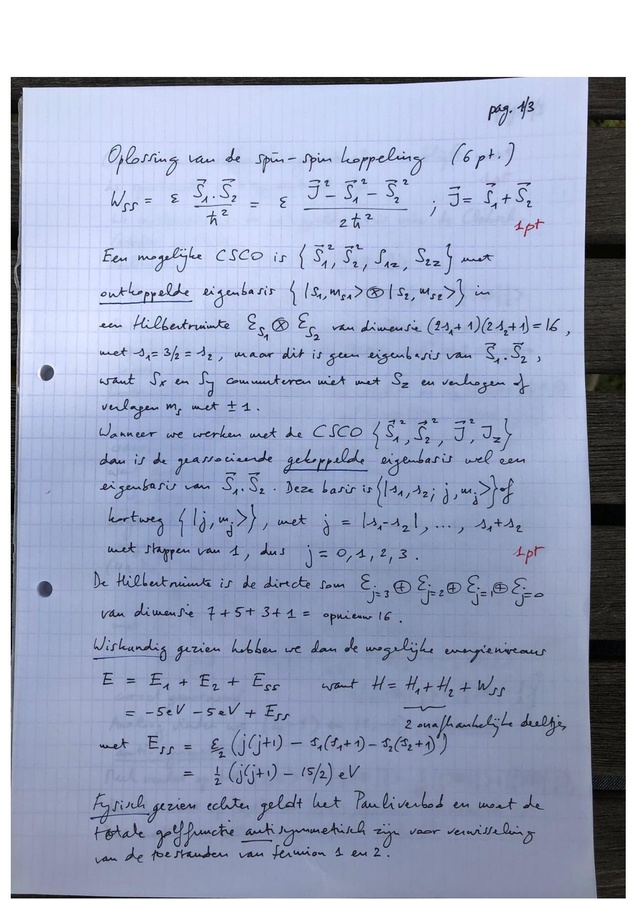 pag. 1/3
Oplossing van de spin-spin koppeling (6 pt.)
W_SS = ε \vec{S}_1.\vec{S}_2 / ħ² = ε (\vec{J}² - \vec{S}_1² - \vec{S}_2²) / 2ħ² ; \vec{J} = \vec{S}_1 + \vec{S}_2
1pt
Een mogelijke CSCO is {\vec{S}_1², \vec{S}_2², S_1z, S_2z} met
ontkoppelde eigenbasis {|s_1, m_s1> ⊗ |s_2, m_s2>} in
een Hilbertruimte ℰ_S1 ⊗ ℰ_S2 van dimensie (2s_1+1)(2s_2+1) = 16,
met s_1 = 3/2 = s_2, maar dit is geen eigenbasis van \vec{S}_1.\vec{S}_2,
want S_x en S_y commuteren niet met S_z en verhogen of
verlagen m_s met ±1.
Wanneer we werken met de CSCO {\vec{S}_1², \vec{S}_2², \vec{J}², J_z}
dan is de geassocieerde gekoppelde eigenbasis wel een
eigenbasis van \vec{S}_1.\vec{S}_2. Deze basis is {|s_1, s_2; j, m_j>} of
kortweg {|j, m_j>}, met j = |s_1-s_2|, ..., s_1+s_2
met stappen van 1, dus j = 0, 1, 2, 3.
1pt
De Hilbertruimte is de directe som ℰ_j=3 ⊕ ℰ_j=2 ⊕ ℰ_j=1 ⊕ ℰ_j=0
van dimensie 7+5+3+1 = opnieuw 16.
Wiskundig gezien hebben we dan de mogelijke energieniveaus
E = E_1 + E_2 + E_SS want H = H_1 + H_2 + W_SS
= -5eV - 5eV + E_SS 2 onafhankelijke deeltjes
met E_SS = ε/2 (j(j+1) - s_1(s_1+1) - s_2(s_2+1))
= 1/2 (j(j+1) - 15/2) eV
Fysisch gezien echter geldt het Pauliverbod en moet de
totale golffunctie antisymmetrisch zijn voor verwisseling
van de toestanden van fermion 1 en 2.